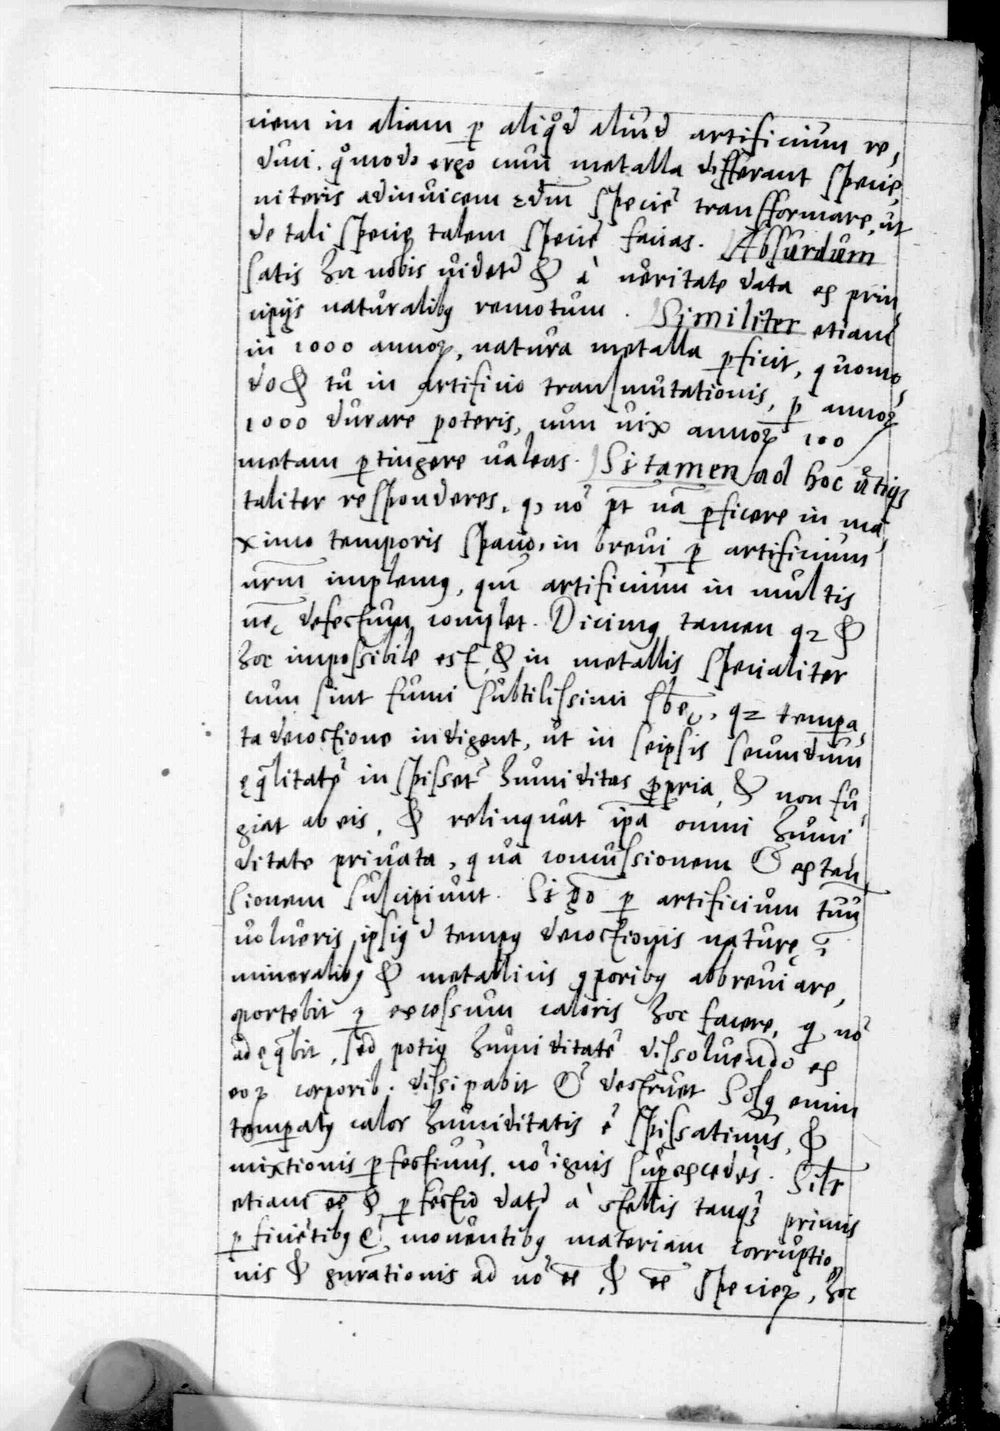 ciem in aliam p aliqͦd aliud artificium re,
duci. qͦmodo ergo cum metalla differant specie,
niteris adinuicem scdm̄ speciē transformare, ut
de tali specie talem speciē facias. Absurdum
satis hoc nobis uidetᷣ & à ueritate data ex prin
cipijs naturalibꝰ remotum. Similiter etiam
in 1000 annoꝝ, natura metalla ꝑficit, quomo,
do & tu in artificio transmutationis, ꝑ annoꝝ
1000 durare poteris, cum uix annoꝝ 100
metam ꝑtingere ualeas. Si tamen ad hoc
taliter responderes, qꝫ nō pt̄ nā ꝑficere in ma
ximo temporis spacio, in breui ꝑ artificium
nrm̄ implemꝰ, qm̄ artificium in multis
defectum complet. Dicimꝰ tamen qꝫ &
hoc impossibile est, & in metallis specialiter
cum sint fumi subtilissimi, qꝫ tempa,
ta decoctione indigent, ut in seipsis secundum
ęqlitatē inspissetᷣ humiditas ꝓpria, & non fu,
giat ab eis, & relinquat ip̄a omni humi
ditate priuata, quā concussionem & exten
sionem suscipiunt. Si gͦ ꝑ artificium tuū
uolueris, ipsiꝰ tempꝰ decoctionis naturę ī
mineralibꝰ & metallicis ꝯporibꝰ abbreuiare,
oportebit ꝑ excessum caloris hoc facere, q nō
adęqbit, sed potiꝰ humiditatē dissoluendo ex
eoꝝ corporibꝰ. dissipabit & destruet Solꝰ enim
temperatꝰ calor humiditatis ē spissatiuus, &
mixtionis ꝑfectiuus. nō ignis supexcedēs. Silr̄
etiam eē & ꝑfectio datᷣ à stellis tanqꝫ primis
ꝑficiētibꝰ & mouentibꝰ materiam corruptio,
nis & gnrationis ad nō eē, & eē specieꝝ, hoc